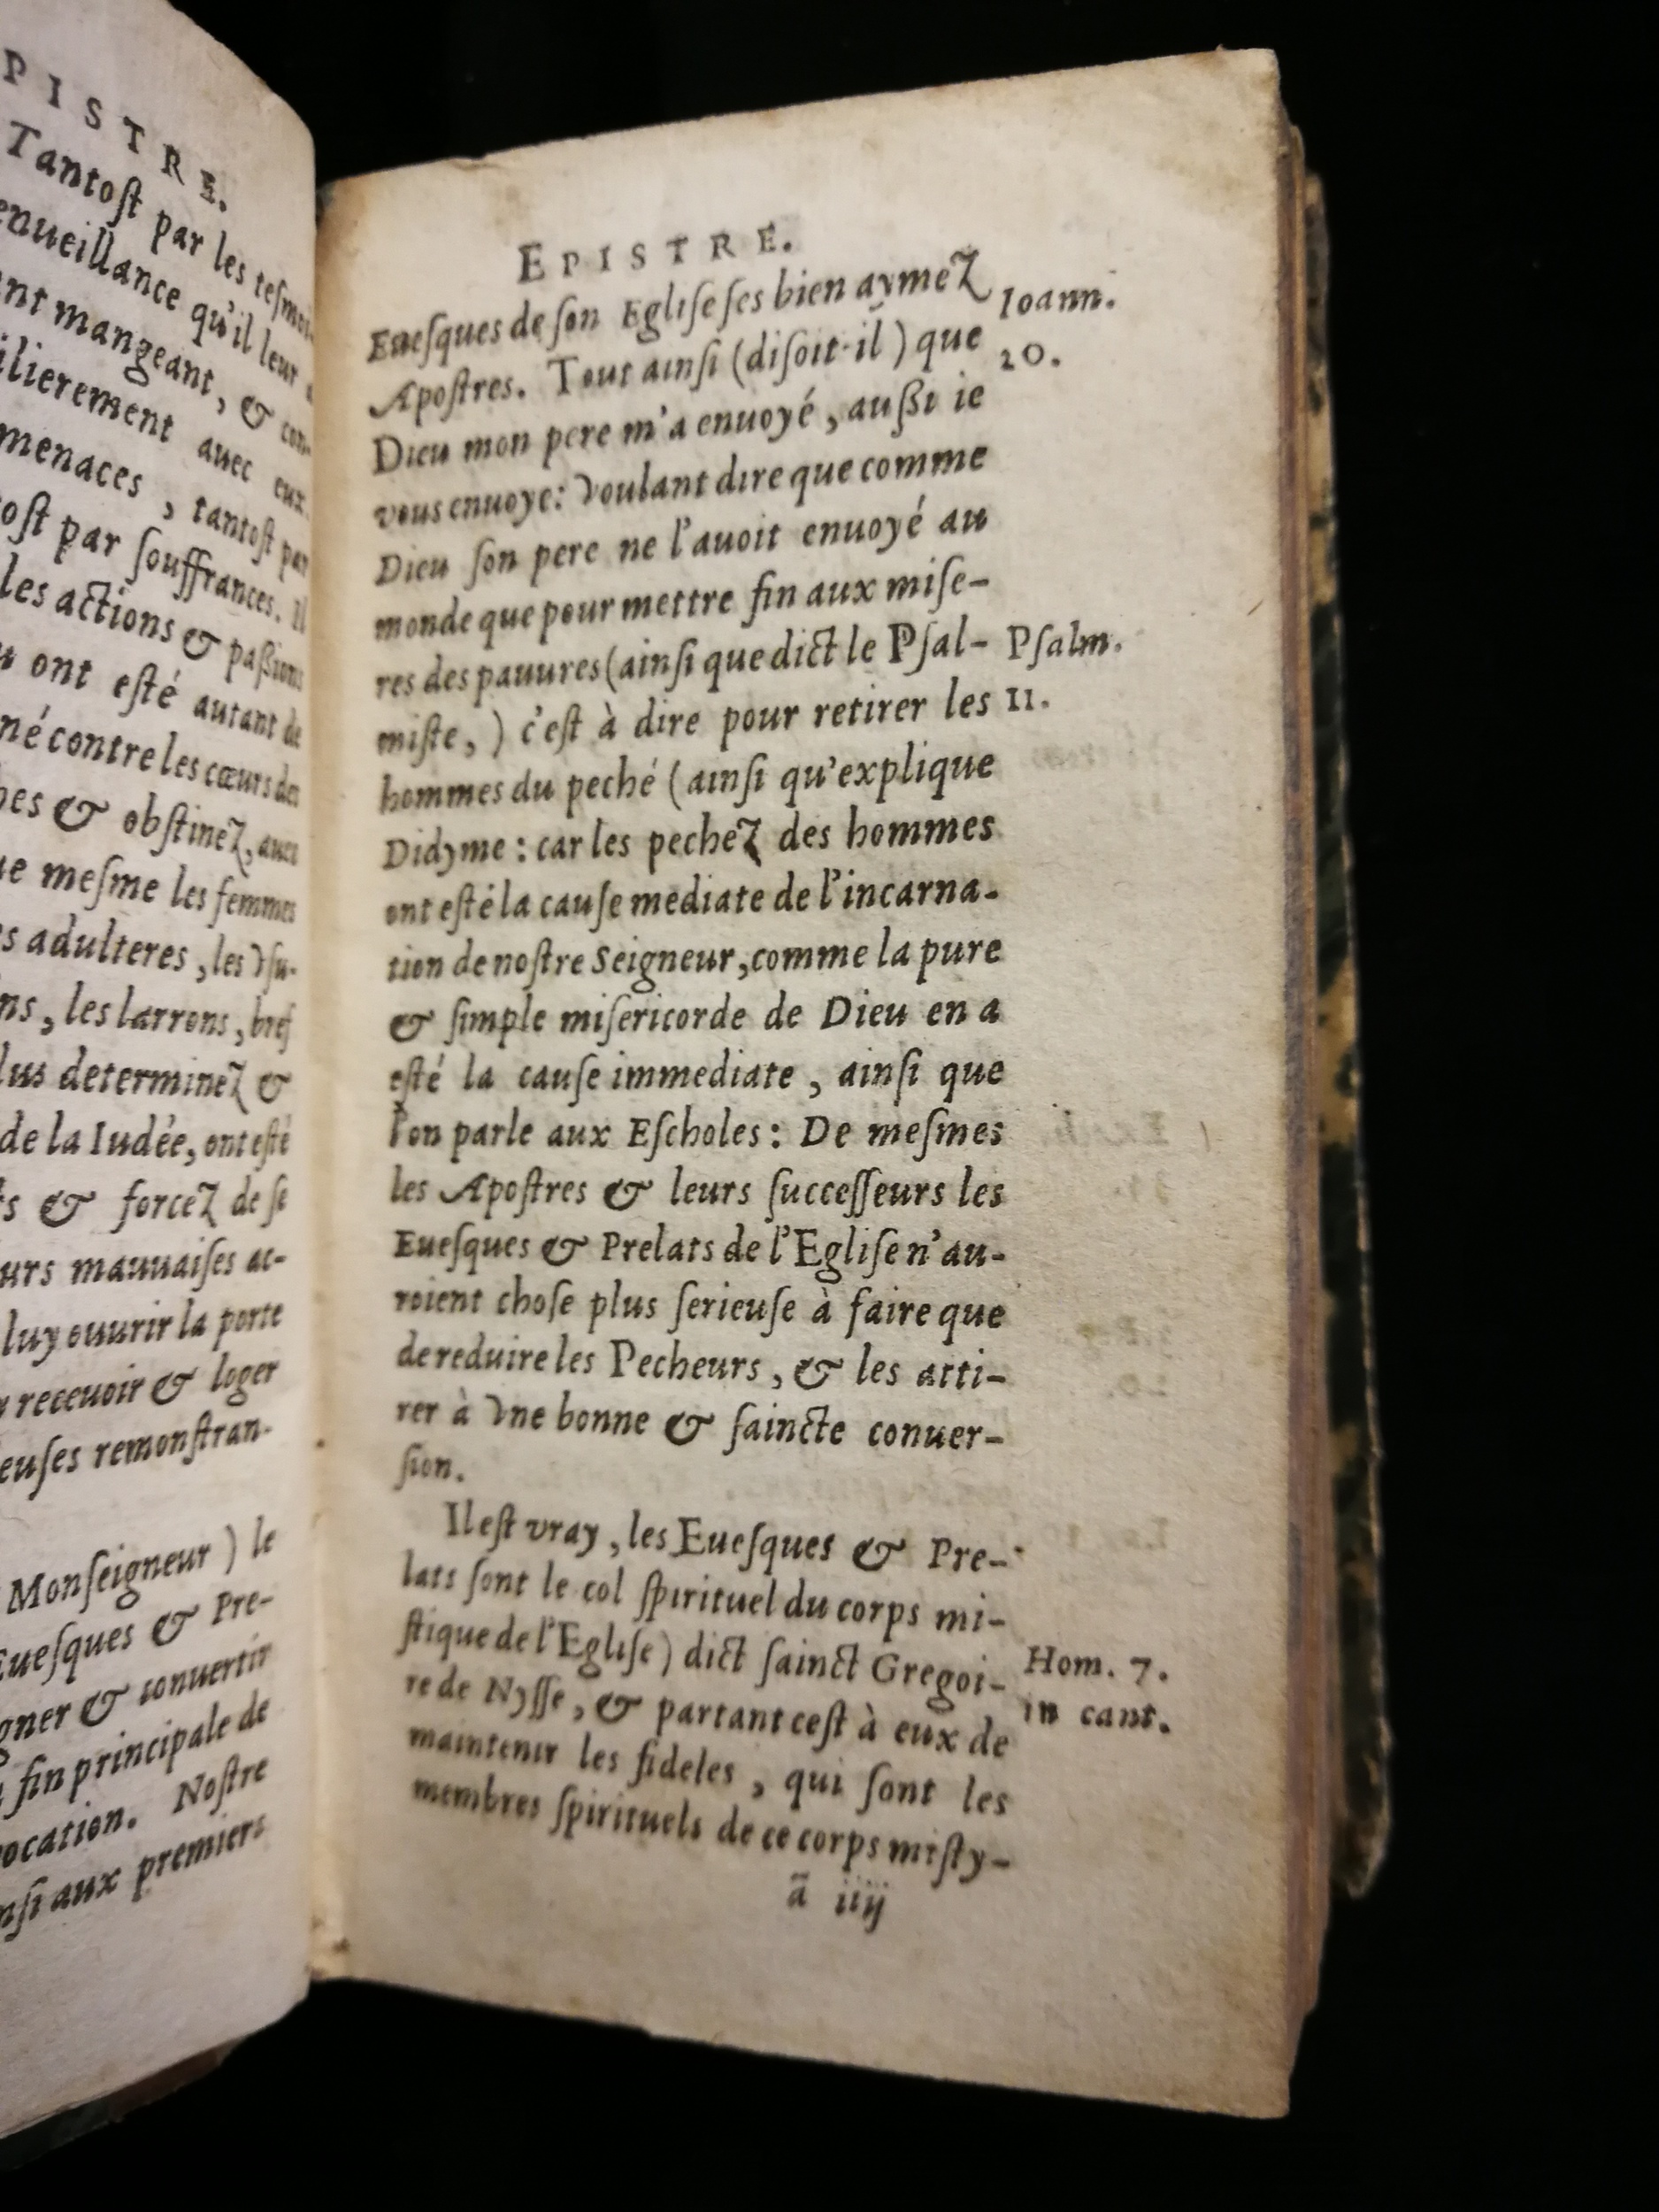 PISTRE.
Tantoſt par les teſmoi-
enueillance qu'il leur
ant mangeant, & con-
ilierement auec eux.
menaces, tantoſt par
oſt par ſouffrances. Il
les actions & paßions
u ont eſté autant de
né contre les cœurs des
hes & obſtinez, auec
ue meſme les femmes
s adulteres, les vſu-
ns, les larrons, bref
lus determinez &
de la Iudée, ont eſté
ts & forcez de ſe
urs mauuaiſes ac-
luy ouurir la porte
recevoir & loger
euſes remonſtran-
Monſeigneur) le
Eueſques & Pre-
gner & conuertir
fin principale de
ocation. Noſtre
nſi aux premiers
EPISTRE.
Eueſques de ſon Egliſe ſes bien aymez
Apoſtres. Tout ainſi (diſoit-il) que
Dieu mon pere m'a enuoyé, außi ie
vous enuoye: Voulant dire que comme
Dieu ſon pere ne l'auoit enuoyé au
monde que pour mettre fin aux miſe-
res des pauures (ainſi que dict le Pſal-
miſte,) c'eſt à dire pour retirer les
hommes du peché (ainſi qu'explique
Didyme: car les pechez des hommes
ont eſté la cauſe mediate de l'incarna-
tion de noſtre Seigneur, comme la pure
& ſimple miſericorde de Dieu en a
eſté la cauſe immediate, ainſi que
l'on parle aux Eſcholes: De meſmes
les Apoſtres & leurs ſucceſſeurs les
Eueſques & Prelats de l'Egliſe n'au-
roient choſe plus ſerieuſe à faire que
de reduire les Pecheurs, & les atti-
rer à vne bonne & ſaincte conuer-
ſion.
Il eſt vray, les Eueſques & Pre-
lats ſont le col ſpirituel du corps mi-
ſtique de l'Egliſe) dict ſainct Gregoi-
re de Nyſſe, & partant ceſt à eux de
maintenir les fideles, qui ſont les
membres ſpirituels de ce corps miſty-
ã iiij
Ioann.
20.
Pſalm.
11.
Hom. 7.
in cant.